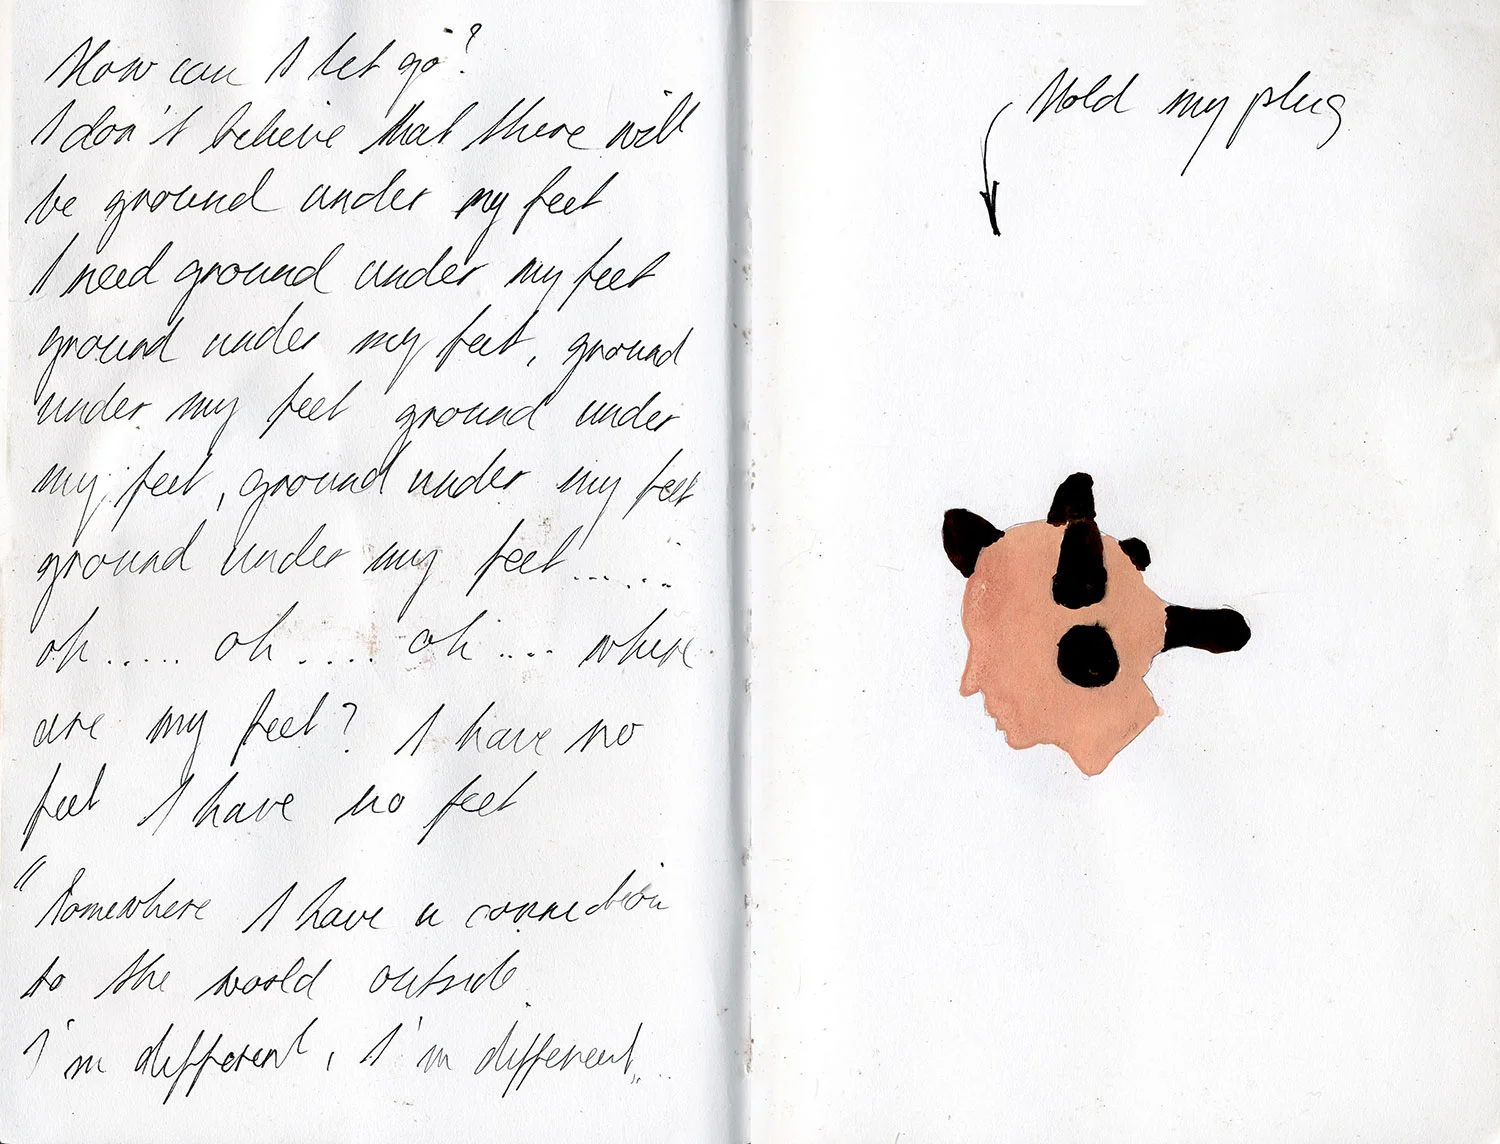 How can I let go?
I don't believe that there will
be ground under my feet
I need ground under my feet
ground under my feet, ground
under my feet ground under
my feet, ground under my feet
ground under my feet......
oh..... oh.... oh.... where
are my feet? I have no
feet I have no feet
"Somewhere I have a connection
to the world outside.
I'm different, I'm different"..
Hold my plug